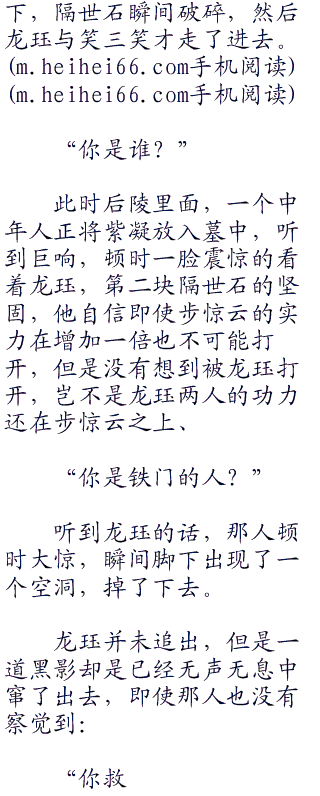 下，隔世石瞬间破碎，然后
龙珏与笑三笑才走了进去。
(m.heihei66.com手机阅读)
(m.heihei66.com手机阅读)
“你是谁？”
此时后陵里面，一个中
年人正将紫凝放入墓中，听
到巨响，顿时一脸震惊的看
着龙珏，第二块隔世石的坚
固，他自信即使步惊云的实
力在增加一倍也不可能打
开，但是没有想到被龙珏打
开，岂不是龙珏两人的功力
还在步惊云之上、
“你是铁门的人？”
听到龙珏的话，那人顿
时大惊，瞬间脚下出现了一
个空洞，掉了下去。
龙珏并未追出，但是一
道黑影却是已经无声无息中
窜了出去，即使那人也没有
察觉到：
“你救